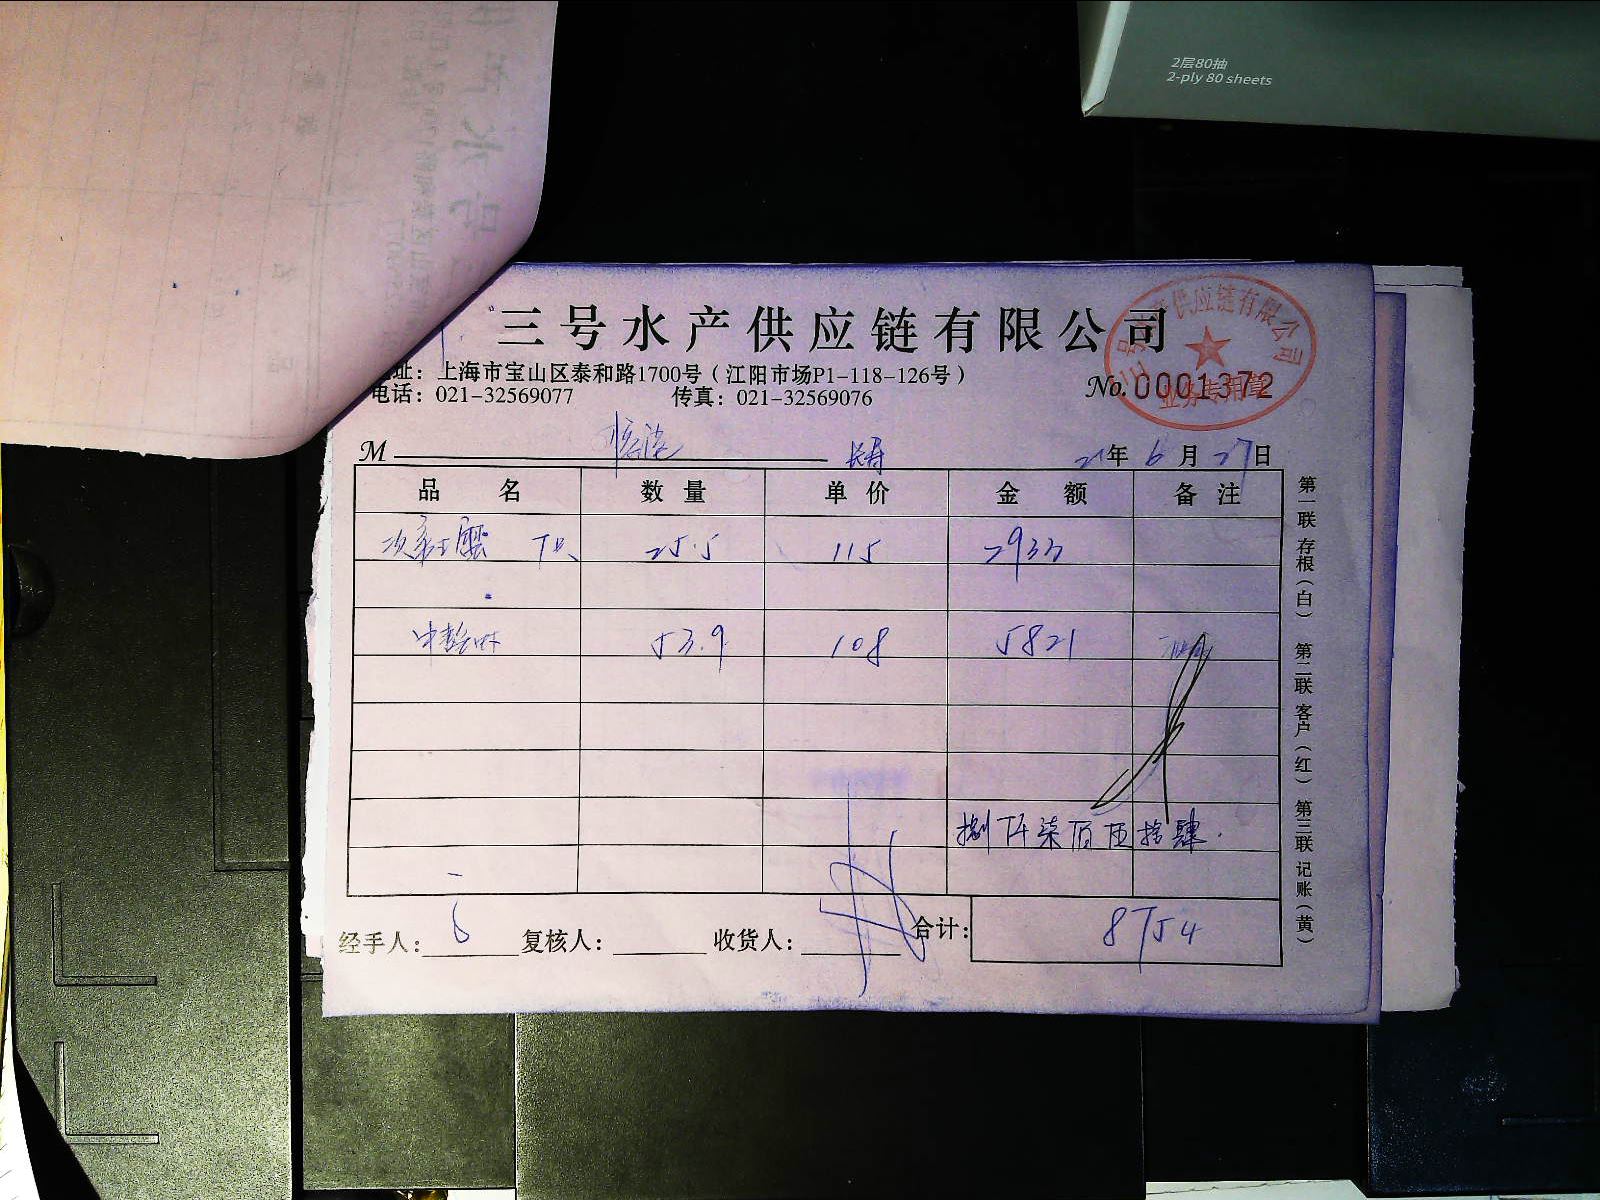 2层80抽
2-ply 80 sheets
三号水产供应链有限公司
三号水产供应链有限公司
业务专用章
址：上海市宝山区泰和路1700号（江阳市场P1-118-126号）
电话：021-32569077 传真：021-32569076
No.0001372
M 长寿 21年6月27日
品名 数量 单价 金额 备注
25.5 115 2933
53.9 108 5821
捌仟柒佰伍拾肆.
经手人： 复核人： 收货人： 合计： 8754
第一联 存根（白） 第二联 客户（红） 第三联 记账（黄）